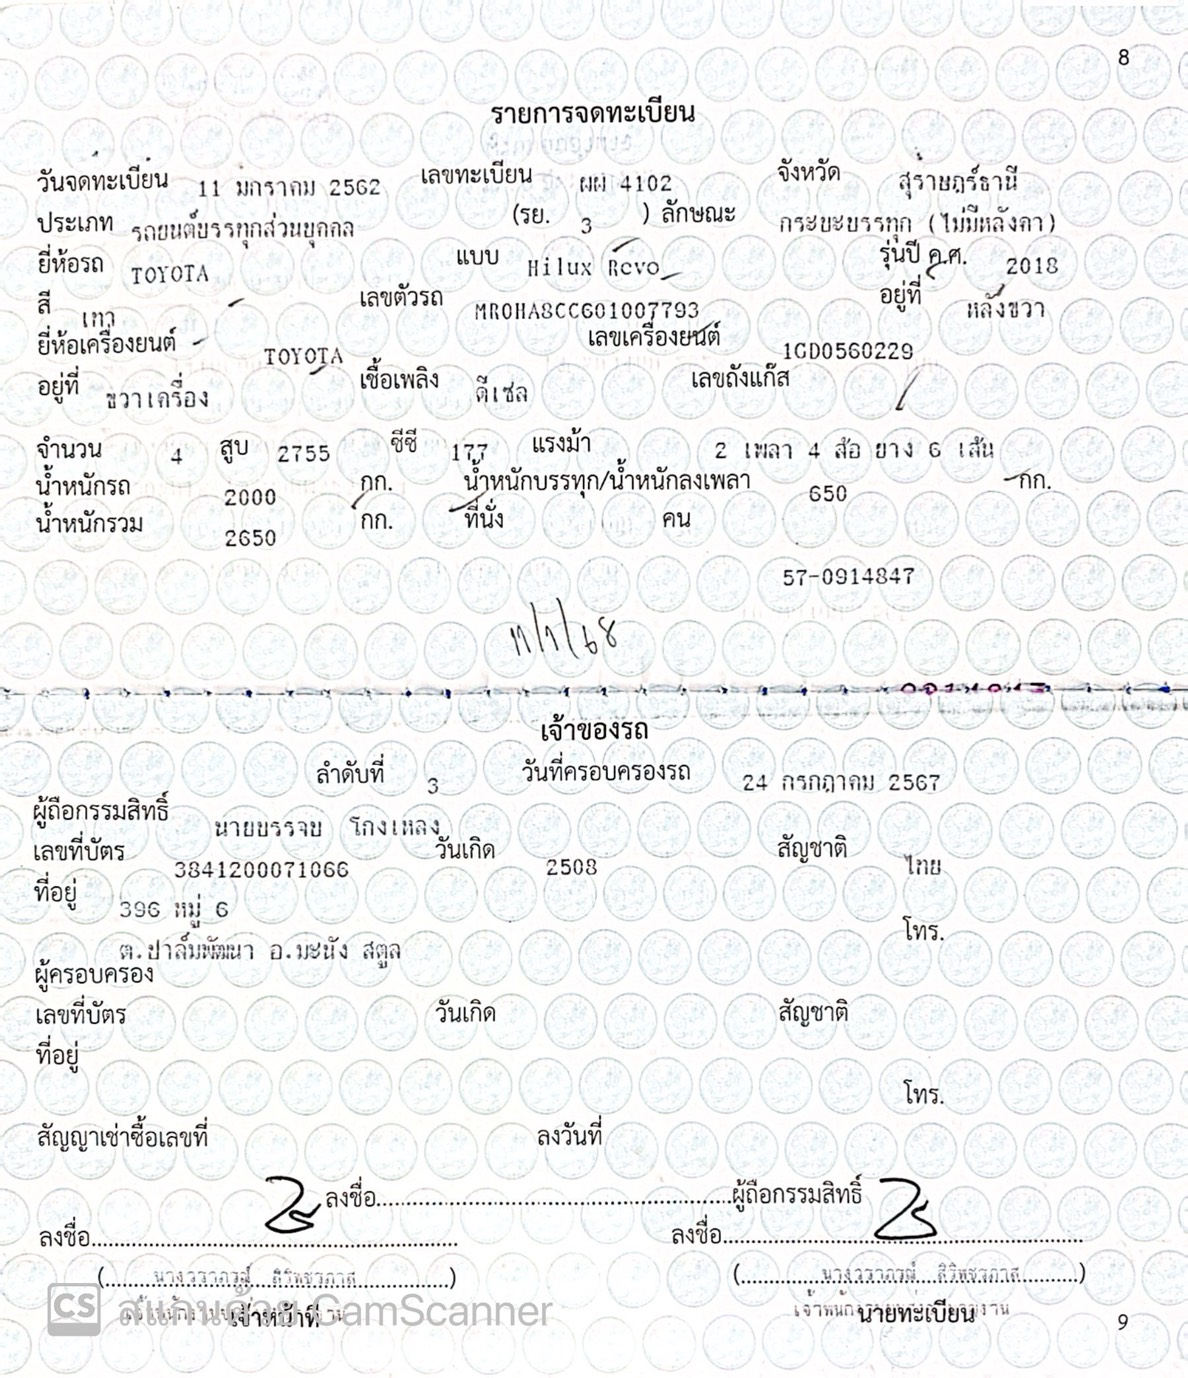 8
รายการจดทะเบียน
วันจดทะเบียน 11 มกราคม 2562 เลขทะเบียน ผผ 4102 จังหวัด สุราษฎร์ธานี
ประเภท รถยนต์บรรทุกส่วนบุคคล (รย. 3 ) ลักษณะ กระบะบรรทุก (ไม่มีหลังคา)
ยี่ห้อรถ TOYOTA แบบ Hilux Revo รุ่นปี ค.ศ. 2018
สี เทา เลขตัวรถ MR0HA8CC601007793 อยู่ที่ หลังขวา
ยี่ห้อเครื่องยนต์ TOYOTA เลขเครื่องยนต์ 1GD0560229
อยู่ที่ ขวาเครื่อง เชื้อเพลิง ดีเซล เลขถังแก๊ส
จำนวน 4 สูบ 2755 ซีซี 177 แรงม้า 2 เพลา 4 ล้อ ยาง 6 เส้น
น้ำหนักรถ 2000 กก. น้ำหนักบรรทุก/น้ำหนักลงเพลา 650 กก.
น้ำหนักรวม 2650 กก. ที่นั่ง คน
57-0914847
11/1/68
เจ้าของรถ
ลำดับที่ 3 วันที่ครอบครองรถ 24 กรกฎาคม 2567
ผู้ถือกรรมสิทธิ์ นายบรรจบ โกงเหลง
เลขที่บัตร 3841200071066 วันเกิด 2508 สัญชาติ ไทย
ที่อยู่ 396 หมู่ 6
โทร.
ต.ปาล์มพัฒนา อ.มะนัง สตูล
ผู้ครอบครอง
เลขที่บัตร วันเกิด สัญชาติ
ที่อยู่
โทร.
สัญญาเช่าซื้อเลขที่ ลงวันที่
ลงชื่อ ผู้ถือกรรมสิทธิ์
ลงชื่อ ลงชื่อ
(นางวราภรณ์ สิริพชรภาส) (นางวราภรณ์ สิริพชรภาส)
เจ้าหน้าที่ นายทะเบียน
CS สแกนด้วย CamScanner
9